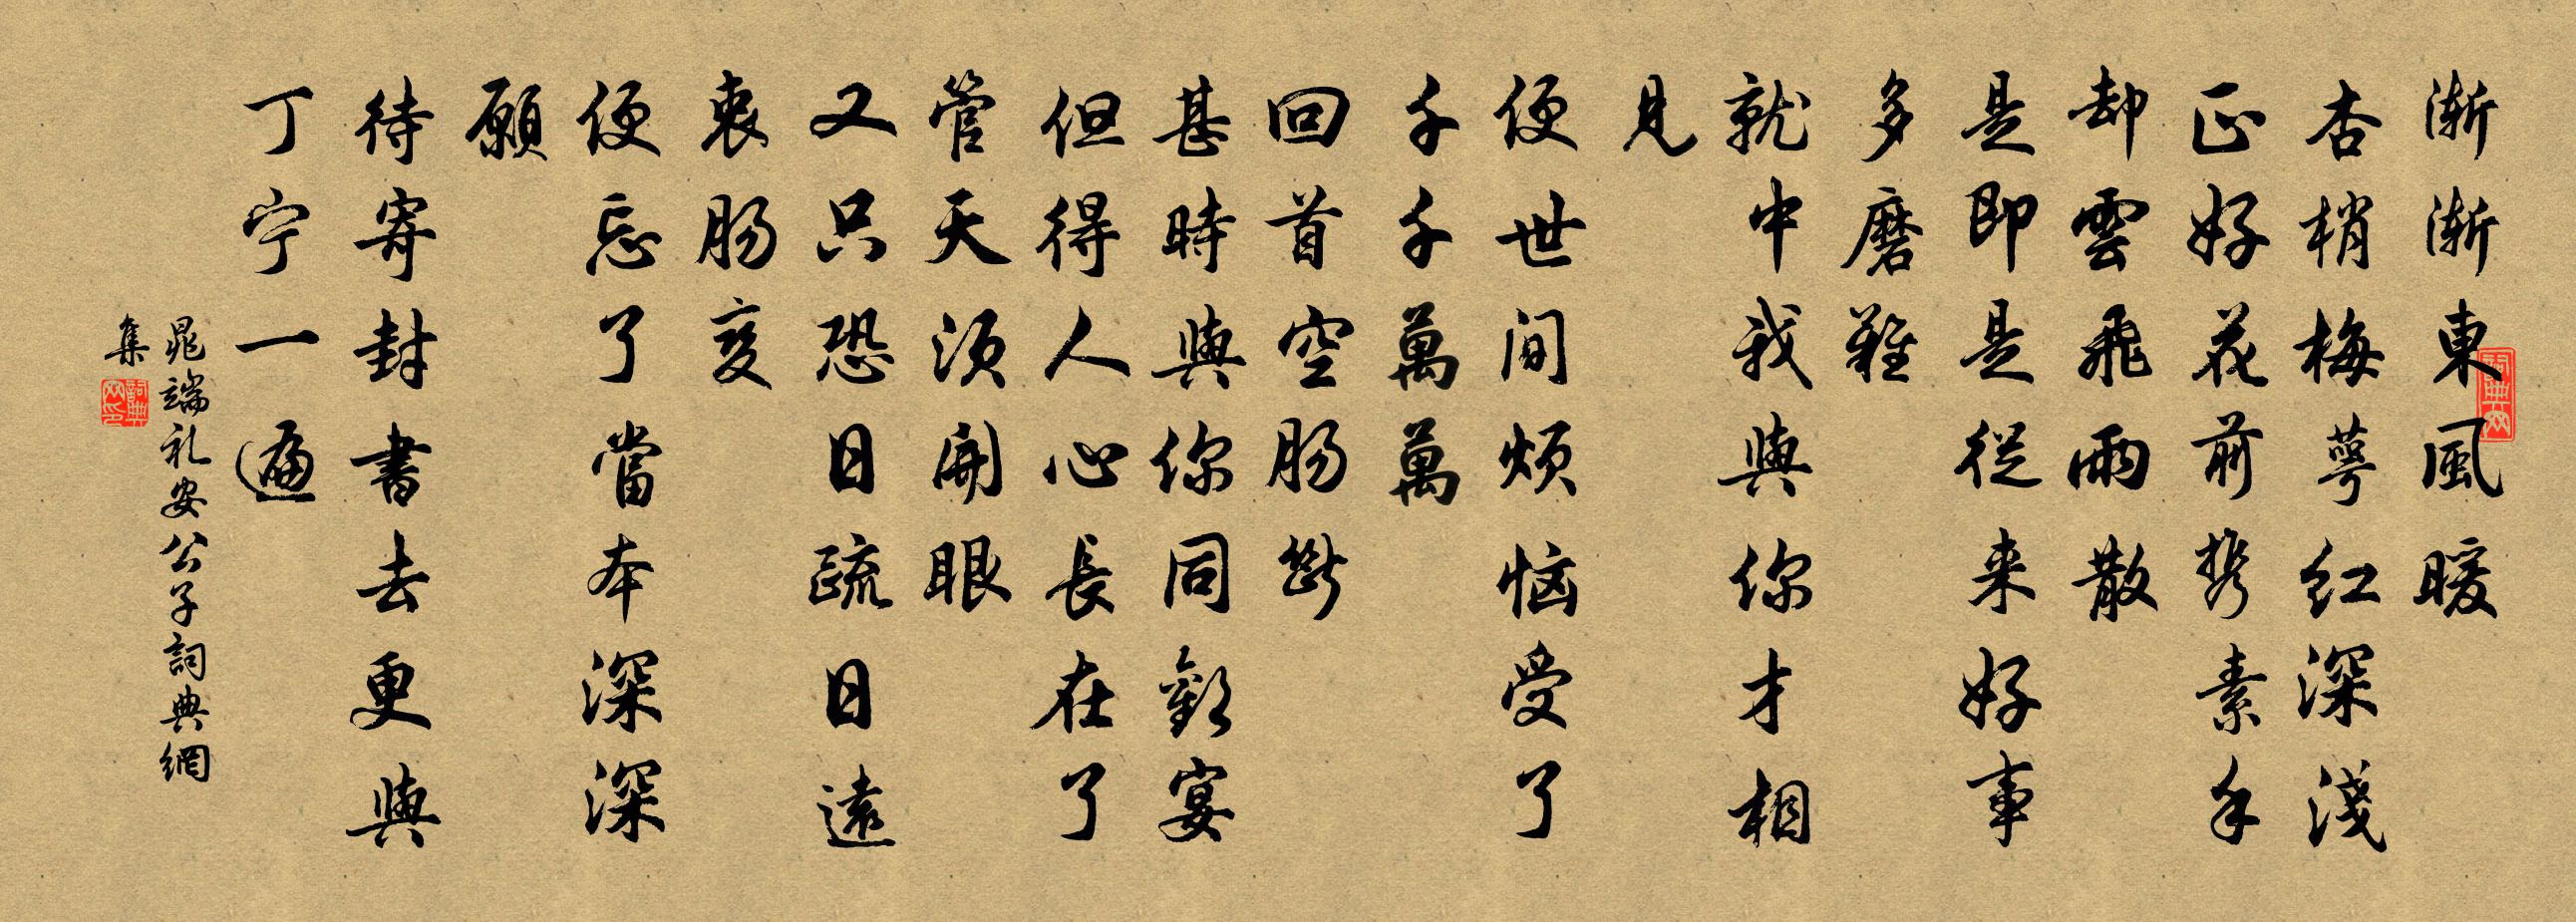 漸漸東風暖
杏梢梅萼红深淺
正好花前携素手
却雲飛雨散
是即是從来好事
多磨難
就中我與你才相
見
便世间烦恼受了
千千萬萬
回首空肠斷
甚時與你同歡宴
但得人心長在了
管天须開眼
又只恐日疏日遠
衷肠变
便忘了當本深深
願
待寄封書去更與
丁宁一遍
晁端礼安公子詞典網
集